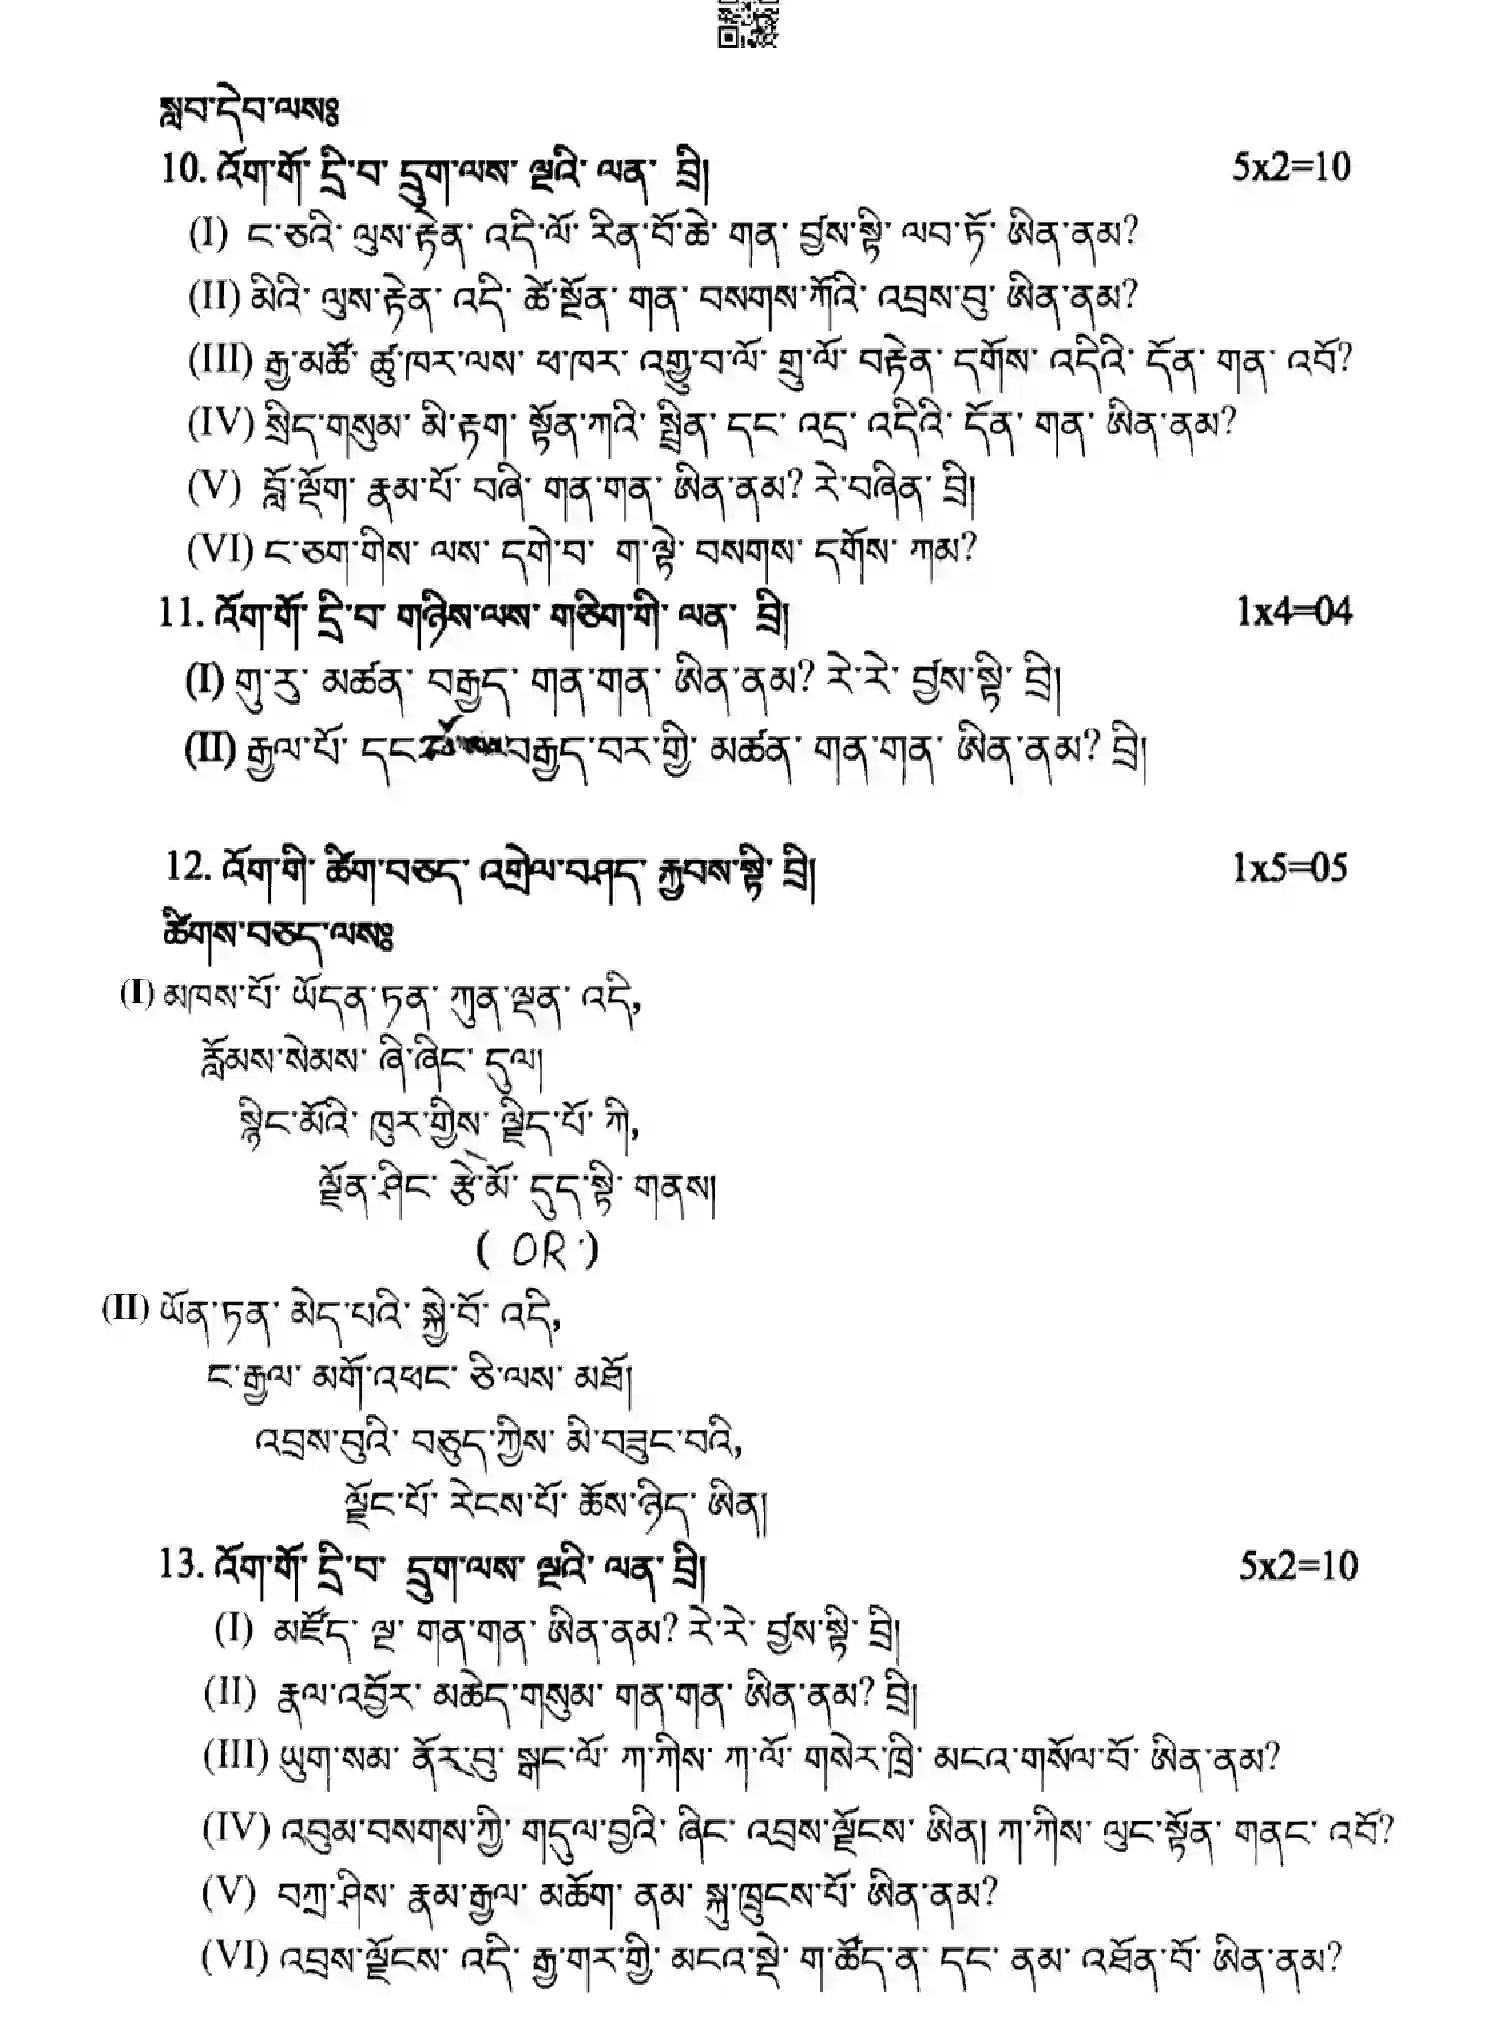 སློབ་དེབ་ལསཿ
10. འོག་གོ་ དྲི་བ་ དྲུག་ལས་ ལྔའི་ ལན་ བྲི། 5x2=10
(I) ང་ཅའི་ ལུས་རྟེན་ འདི་ལོ་ རིན་པོ་ཆེ་ གན་ བྱས་སྟི་ ལབ་ཏོ་ ཨིན་ནམ?
(II) མིའི་ ལུས་རྟེན་ འདི་ ཚེ་སྔོན་ གན་ བསགས་ཀོའི་ འབྲས་བུ་ ཨིན་ནམ?
(III) རྒྱ་མཚོ་ ཚུ་ཁར་ལས་ ཕ་ཁར་ འགྱུ་བ་ལོ་ གྲུ་ལོ་ བརྟེན་ དགོས་ འདིའི་ དོན་ གན་ འབོ?
(IV) སྲིད་གསུམ་ མི་རྟག་ སྟོན་ཀའི་ སྤྲིན་ དང་ འདྲ་ འདིའི་ དོན་ གན་ ཨིན་ནམ?
(V) བློ་ལྡོག་ རྣམ་པོ་ བཞི་ གན་གན་ ཨིན་ནམ? རེ་བཞིན་ བྲི།
(VI) ང་ཅག་གིས་ ལས་ དགེ་བ་ ག་ལྟེ་ བསགས་ དགོས་ ཀམ?
11. འོག་གོ་ དྲི་བ་ གཉིས་ལས་ གཅིག་གི་ ལན་ བྲི། 1x4=04
(I) གུ་རུ་ མཚན་ བརྒྱད་ གན་གན་ ཨིན་ནམ? རེ་རེ་ བྱས་སྟི་ བྲི།
(II) རྒྱལ་པོ་ དང་ བརྒྱད་བར་གྱི་ མཚན་ གན་གན་ ཨིན་ནམ? བྲི།
12. འོག་གི་ ཚིག་བཅད་ འགྲེལ་བཤད་ རྐྱབས་སྟི་ བྲི། 1x5=05
ཚིགས་བཅད་ལསཿ
(I) མཁས་པོ་ ཡོདན་ཏན་ ཀུན་ལྡན་ འདི,
རློམས་སེམས་ ཞི་ཞིང་ དུལ།
སྙིང་མོའི་ ཁུར་གྱིས་ ལྗིད་པོ་ ཀི,
ལྗོན་ཤིང་ རྩེ་མོ་ དུད་སྟི་ གནས།
( OR )
(II) ཡོན་ཏན་ མེད་པའི་ སྐྱེ་བོ་ འདི,
ང་རྒྱལ་ མགོ་འཕང་ ཅི་ལས་ མཐོ།
འབྲས་བུའི་ བཅུད་ཀྱིས་ མི་བཟུང་བའི,
ལྗོང་པོ་ རེངས་པོ་ ཆོས་ཉིད་ ཨིན།
13. འོག་གོ་ དྲི་བ་ དྲུག་ལས་ ལྔའི་ ལན་ བྲི། 5x2=10
(I) མཛོད་ ལྔ་ གན་གན་ ཨིན་ནམ? རེ་རེ་ བྱས་སྟི་ བྲི།
(II) རྣལ་འབྱོར་ མཆེད་གསུམ་ གན་གན་ ཨིན་ནམ? བྲི།
(III) ཡུག་སམ་ ནོར་བུ་ སྒང་ལོ་ ཀ་ཀིས་ ཀ་ལོ་ གསེར་ཁྲི་ མངའ་གསོལ་བོ་ ཨིན་ནམ?
(IV) འབུམ་བསགས་ཀྱི་ གདུལ་བྱའི་ ཞིང་ འབྲས་ལྗོངས་ ཨིན། ཀ་ཀིས་ ལུང་སྟོན་ གནང་ འབོ?
(V) བཀྲ་ཤིས་ རྣམ་རྒྱལ་ མཆོག་ ནམ་ སྐུ་ཁྲུངས་པོ་ ཨིན་ནམ?
(VI) འབྲས་ལྗོངས་ འདི་ རྒྱ་གར་གྱི་ མངའ་སྡེ་ ག་ཚོད་ན་ དང་ ནམ་ འཐོན་བོ་ ཨིན་ནམ?